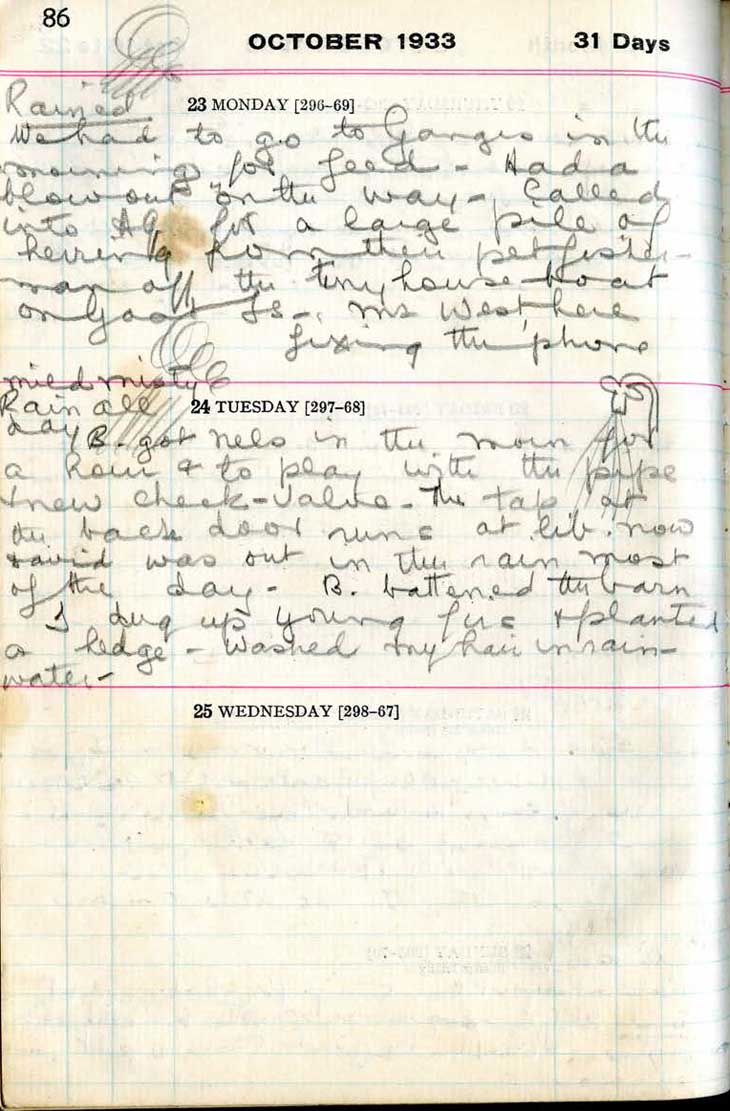 86
OCTOBER 1933 31 Days
Rained
23 MONDAY [296-69]
We had to go to Ganges in the
morning for feed - Had a
blow out on the way - Called
into for a large pile of
herring from their pet fisher-
man off the tiny house boat
on Goat Is -. Mr West here
fixing the phone
mild misty
Rain all
day
24 TUESDAY [297-68]
B. got Nels in the morn for
a hour & to play with the pipe
& new check-valve - The tap at
the back door runs at lib. now
David was out in the rain most
of the day - B. battened the barn
I dug up young firs & planted
a hedge - Washed my hair in rain-
water -
25 WEDNESDAY [298-67]